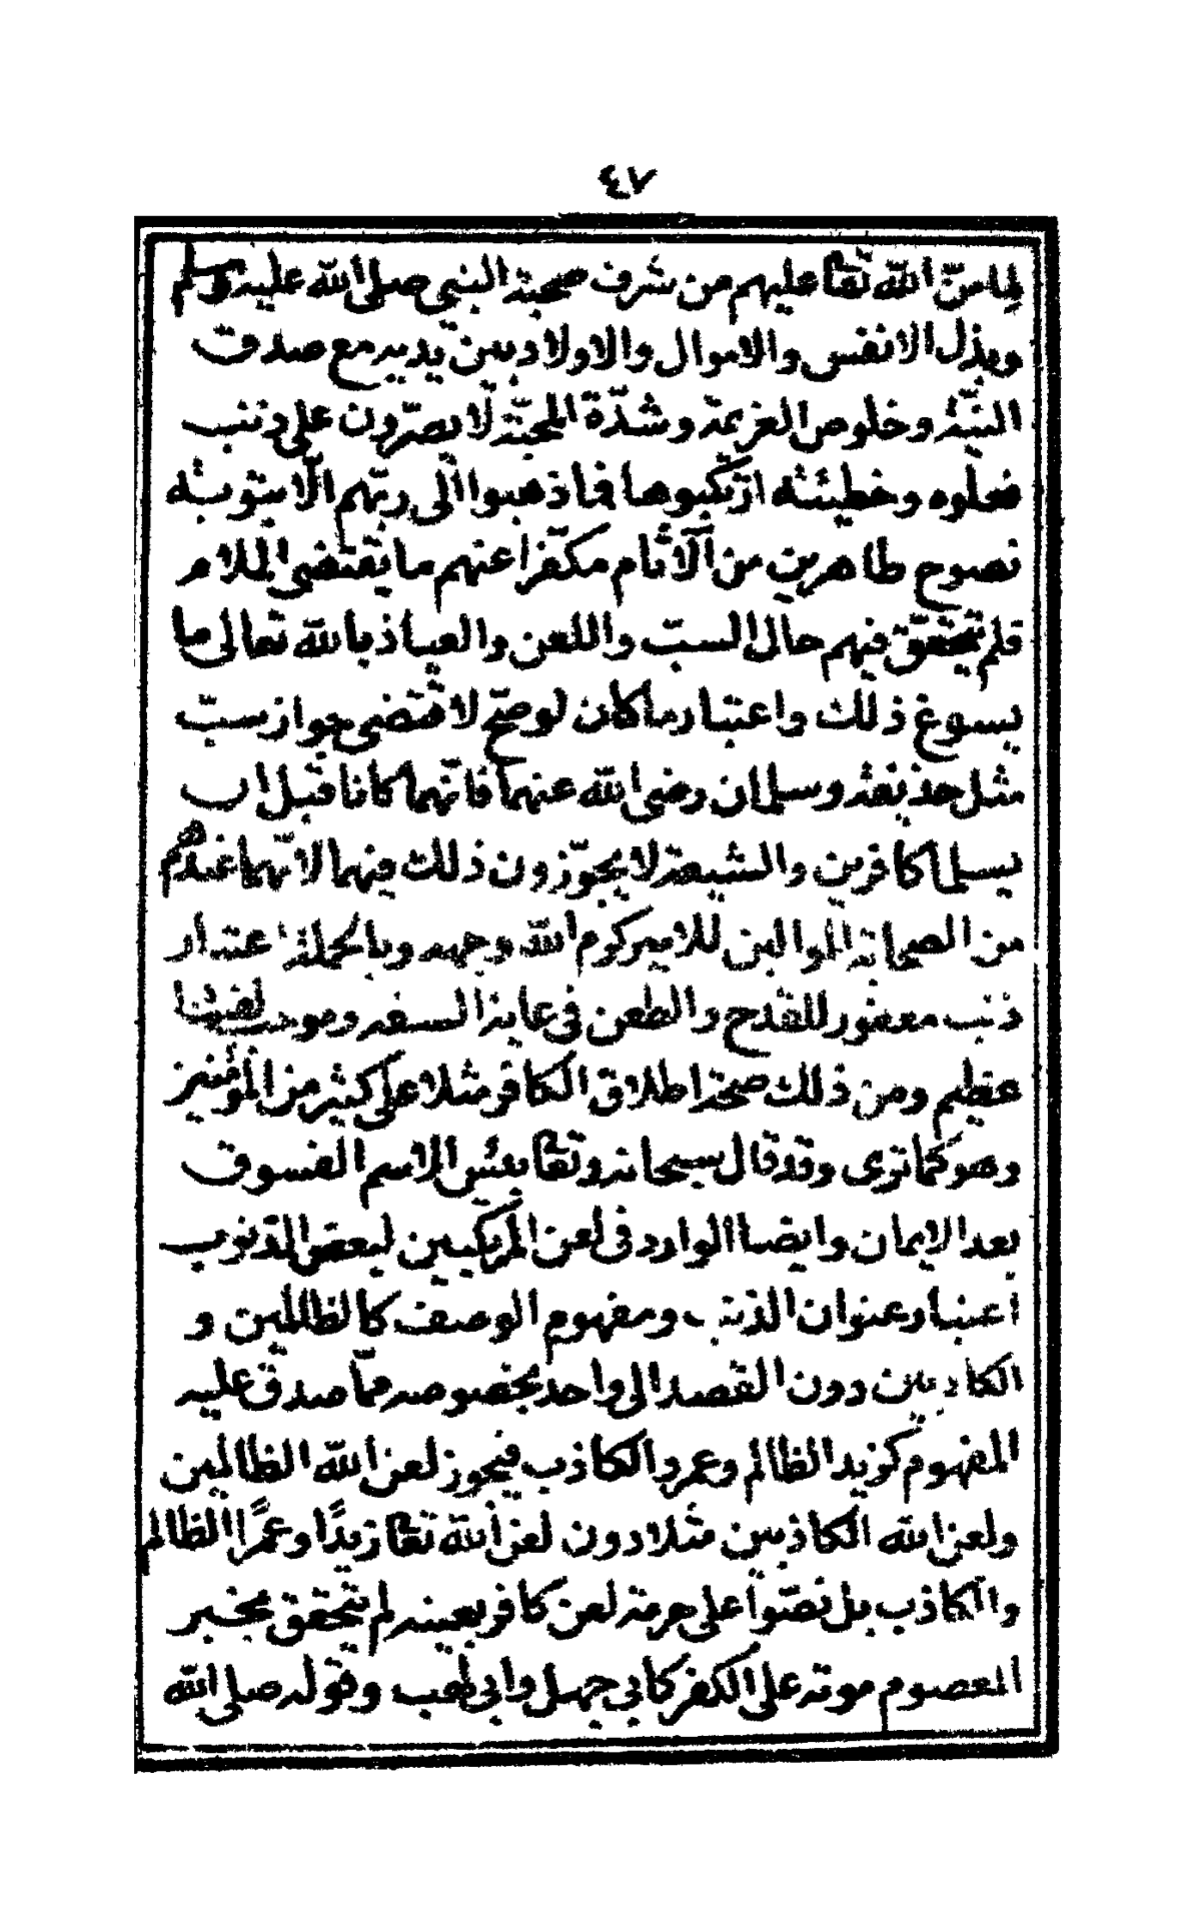 ٤٧
لما منّ الله تعا عليهم من شرف صحبة النبي صلى الله عليه وسلم
وبذل الانفس والاموال والاولاد بين يديه مع صدق
النيّة وخلوص العزيمة وشدّة المحبّة لا يصرّون على ذنب
فعلوه وخطيئة ارتكبوها فما ذهبوا الى ربّهم الّا بتوبة
نصوح طاهرين من الآثام مكفّرا عنهم ما يقتضي الملام
فلم يتحقّق فيهم حال السبّ واللعن والعياذ بالله تعالى ما
يسوغ ذلك واعتبار ما كان لو صحّ لاقتضى جواز سبّ
مثل حذيفة وسلمان رضي الله عنهما فانّهما كانا قبل ان
يسلما كافرين والشيعة لا يجوّزون ذلك فيهما لانّهما عندهم
من الصحابة الموالين للامير كرم الله وجهه وبالجملة اعتبار
ذنب مغفور للقدح والطعن في غاية السفه وموجب لفساد
عظيم ومن ذلك صحة اطلاق الكافر مثلا على كثير من المؤمنين
وهو كما ترى وقد قال سبحانه وتعا بئس الاسم الفسوق
بعد الايمان وايضا الوارد في لعن المرتكبين لبعض الذنوب
اعتبار عنوان الذنب ومفهوم الوصف كالظالمين و
الكاذبين دون القصد الى واحد بخصوصه ممّا صدق عليه
المفهوم كزيد الظالم وعمرو الكاذب فيجوز لعن الله الظالمين
ولعن الله الكاذبين مثلا دون لعن الله تعا زيدًا وعمرًا الظالم
والكاذب بل نصّوا على حرمة لعن كافر بعينه لم يتحقق بخبر
المعصوم موته على الكفر كابي جهل وابي لهب وقوله صلى الله